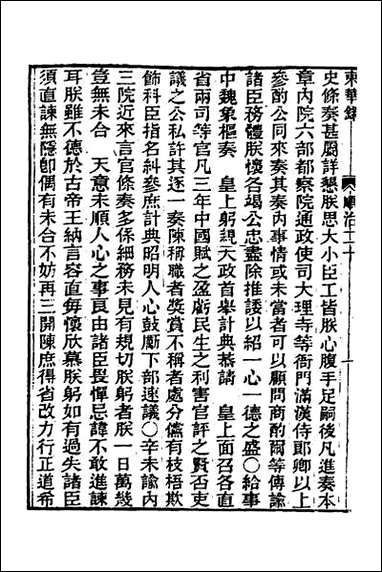 東華錄 順治二十
史條奏甚屬詳懇朕思大小臣工皆朕心腹手足嗣後凡進奏本
章內院六部都察院通政使司大理寺等衙門滿漢侍郞卿以上
參酌公同來奏其奏內事情或未當者可以顧問商酌爾等傳諭
諸臣務體朕懷各竭公忠盡除推諉以紹一心一德之盛〇給事
中魏象樞奏 皇上躬親大政首舉計典恭請 皇上面召各直
省兩司等官凡三年中國賦之盈虧民生之利害官評之賢否吏
議之公私許其逐一奏陳稱職者獎賞不稱者處分儻有枝梧欺
飾科臣指名糾參庶計典昭明人心鼓勵下部速議〇辛未諭內
三院近來言官條奏多係細務未見有規切朕躬者朕一日萬幾
豈無未合 天意未順人心之事良由諸臣畏憚忌諱不敢進諫
耳朕雖不德於古帝王納言容直每懷欣慕朕躬如有過失諸臣
須直諫無隱卽偶有未合不妨再三開陳庶得省改力行正道希